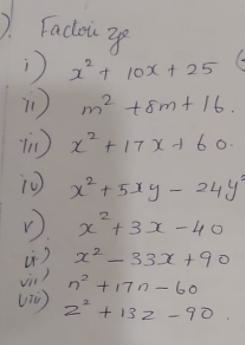 ). Factorize
i) x² + 10x + 25
ii) m² + 8m + 16.
iii) x² + 17x + 60.
iv) x² + 5xy - 24y²
v). x² + 3x - 40
vi) x² - 33x + 90
vii) n² + 17n - 60
viii) z² + 13z - 90.